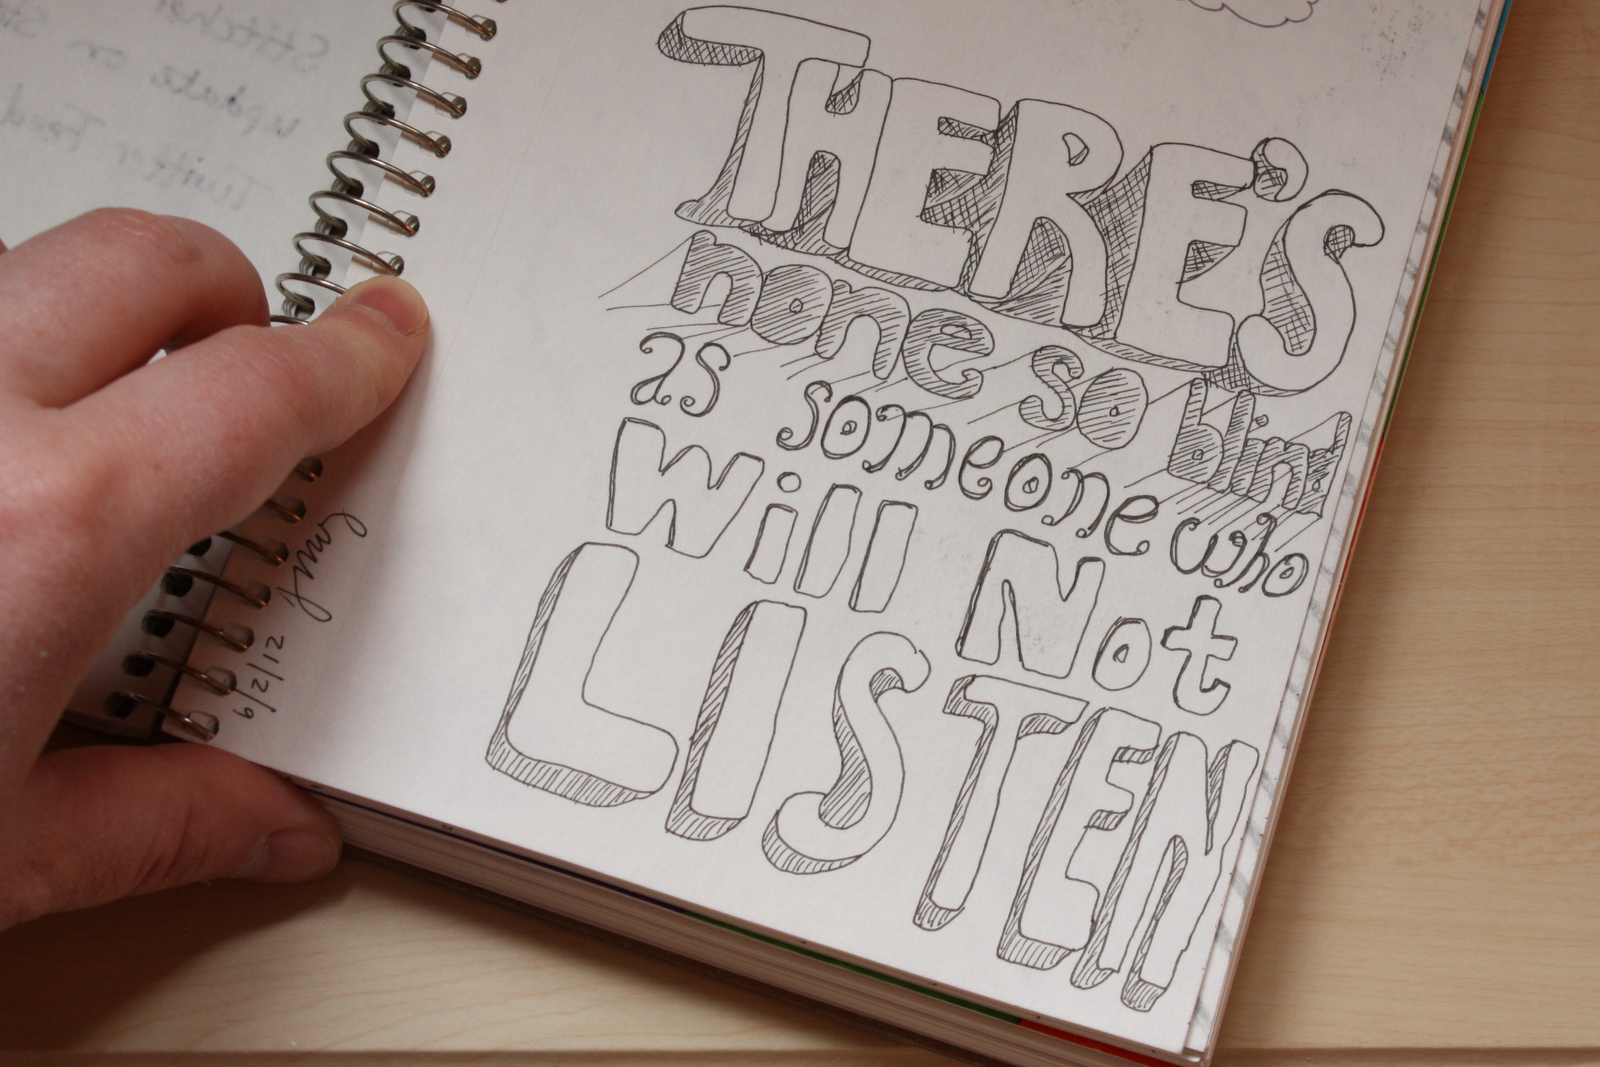 THERE'S
none so blind
as someone who
Will Not
LISTEN
9/2/12
update on
Twitter Feed